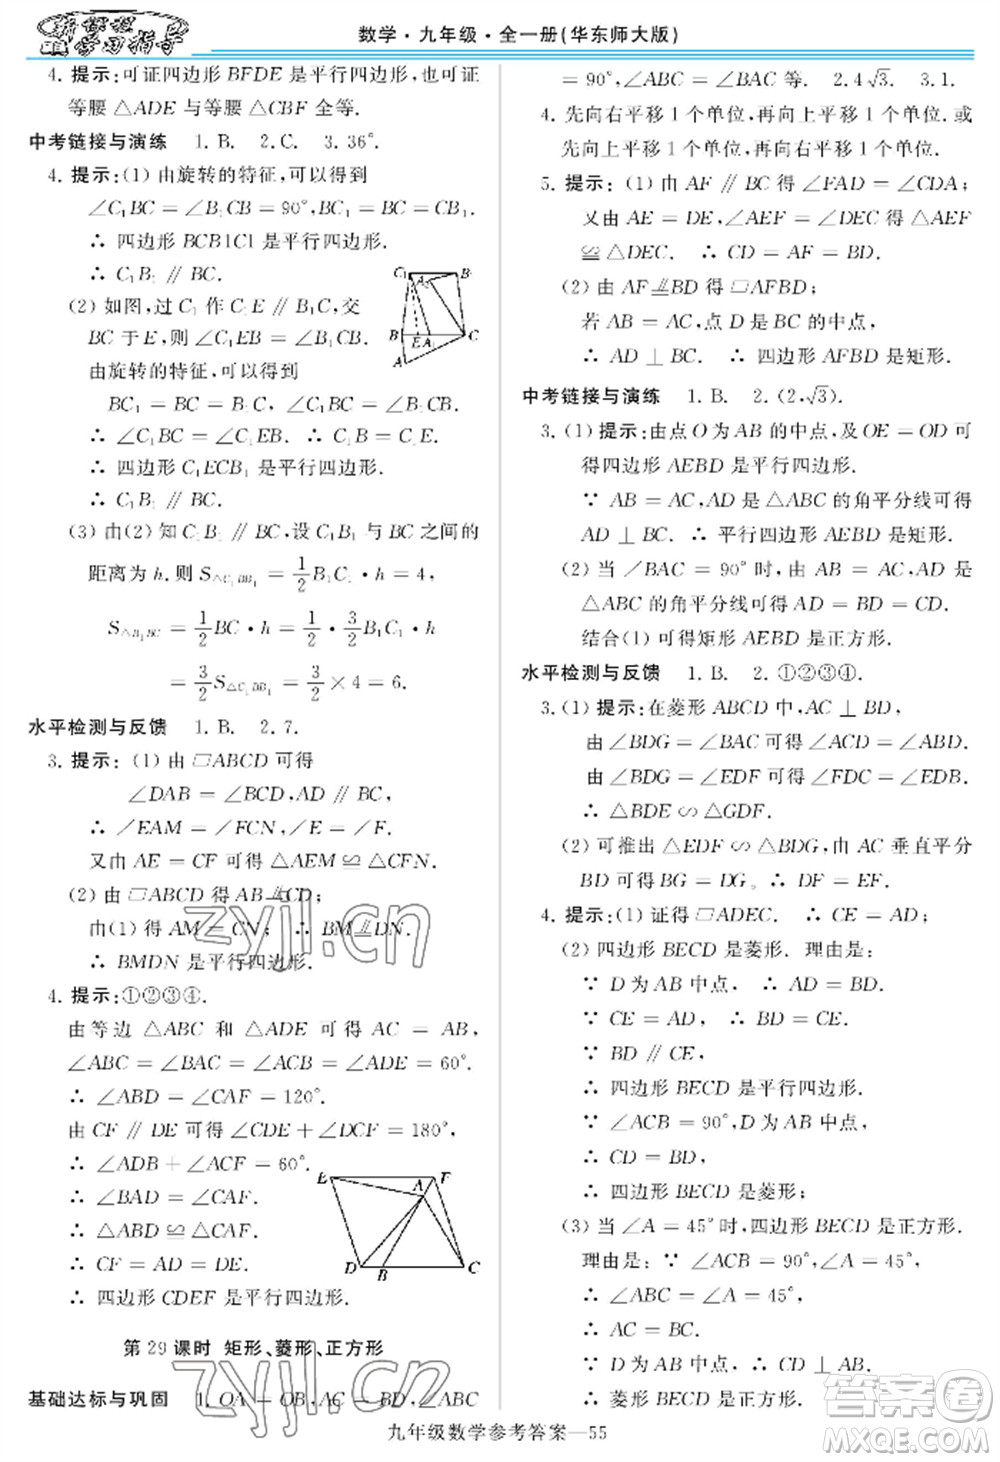 新课程
学习指导
数学·九年级·全一册(华东师大版)
4. 提示:可证四边形 BFDE 是平行四边形,也可证
等腰 △ADE 与等腰 △CBF 全等.
中考链接与演练 1. B. 2. C. 3. 36°.
4. 提示:(1) 由旋转的特征,可以得到
∠C₁BC = ∠B₁CB = 90°, BC₁ = BC = CB₁.
∴ 四边形 BCB1C1 是平行四边形.
∴ C₁B₁ ∥ BC.
(2) 如图,过 C₁ 作 C₁E ∥ B₁C,交
BC 于 E,则 ∠C₁EB = ∠B₁CB.
由旋转的特征,可以得到
BC₁ = BC = B₁C, ∠C₁BC = ∠B₁CB.
∴ ∠C₁BC = ∠C₁EB. ∴ C₁B = C₁E.
∴ 四边形 C₁ECB₁ 是平行四边形.
∴ C₁B₁ ∥ BC.
C₁ A₂ B₁
B E A₁ C
A
(3) 由(2) 知 C₁B₁ ∥ BC,设 C₁B₁ 与 BC 之间的
距离为 h.则 S△C₁BB₁ = 1/2 B₁C₁ · h = 4,
S△B₁BC = 1/2 BC · h = 1/2 · 3/2 B₁C₁ · h
= 3/2 S△C₁BB₁ = 3/2 × 4 = 6.
水平检测与反馈 1. B. 2. 7.
3. 提示: (1) 由 ▱ABCD 可得
∠DAB = ∠BCD, AD ∥ BC,
∴ ∠EAM = ∠FCN, ∠E = ∠F.
又由 AE = CF 可得 △AEM ≌ △CFN.
(2) 由 ▱ABCD 得 AB ∥= CD;
由(1) 得 AM = CN; ∴ BM ∥= DN.
∴ BMDN 是平行四边形.
4. 提示:①②③④.
由等边 △ABC 和 △ADE 可得 AC = AB,
∠ABC = ∠BAC = ∠ACB = ∠ADE = 60°.
∴ ∠ABD = ∠CAF = 120°.
由 CF ∥ DE 可得 ∠CDE + ∠DCF = 180°,
∴ ∠ADB + ∠ACF = 60°.
∴ ∠BAD = ∠ACF.
∴ △ABD ≌ △CAF.
∴ CF = AD = DE.
∴ 四边形 CDEF 是平行四边形.
E A F
D B C
第 29 课时 矩形、菱形、正方形
基础达标与巩固 1. OA = OB, AC = BD, ∠ABC
= 90°, ∠ABC = ∠BAC 等. 2. 4√3. 3. 1.
4. 先向右平移 1 个单位,再向上平移 1 个单位. 或
先向上平移 1 个单位,再向右平移 1 个单位.
5. 提示: (1) 由 AF ∥ BC 得 ∠FAD = ∠CDA;
又由 AE = DE, ∠AEF = ∠DEC 得 △AEF
≌ △DEC. ∴ CD = AF = BD.
(2) 由 AF ∥= BD 得 ▱AFBD;
若 AB = AC,点 D 是 BC 的中点,
∴ AD ⊥ BC. ∴ 四边形 AFBD 是矩形.
中考链接与演练 1. B. 2. (2,√3).
3. (1) 提示:由点 O 为 AB 的中点,及 OE = OD 可
得四边形 AEBD 是平行四边形.
∵ AB = AC, AD 是 △ABC 的角平分线可得
AD ⊥ BC. ∴ 平行四边形 AEBD 是矩形.
(2) 当 ∠BAC = 90° 时,由 AB = AC, AD 是
△ABC 的角平分线可得 AD = BD = CD.
结合(1) 可得矩形 AEBD 是正方形.
水平检测与反馈 1. B. 2. ①②③④.
3. (1) 提示:在菱形 ABCD 中, AC ⊥ BD,
由 ∠BDG = ∠BAC 可得 ∠ACD = ∠ABD.
由 ∠BDG = ∠EDF 可得 ∠FDC = ∠EDB.
∴ △BDE ∽ △GDF.
(2) 可推出 △EDF ∽ △BDG,由 AC 垂直平分
BD 可得 BG = DG, ∴ DF = EF.
4. 提示: (1) 证得 ▱ADEC. ∴ CE = AD;
(2) 四边形 BECD 是菱形. 理由是:
∵ D 为 AB 中点, ∴ AD = BD.
∵ CE = AD, ∴ BD = CE.
∵ BD ∥ CE,
∴ 四边形 BECD 是平行四边形.
∵ ∠ACB = 90°, D 为 AB 中点,
∴ CD = BD.
∴ 四边形 BECD 是菱形;
(3) 当 ∠A = 45° 时,四边形 BECD 是正方形.
理由是: ∵ ∠ACB = 90°, ∠A = 45°
∴ ∠ABC = ∠A = 45°,
∴ AC = BC.
∵ D 为 AB 中点, ∴ CD ⊥ AB.
∴ 菱形 BECD 是正方形.
九年级数学参考答案—55
zyjl.cn
zyjl.cn
答案圈
MXQE.COM